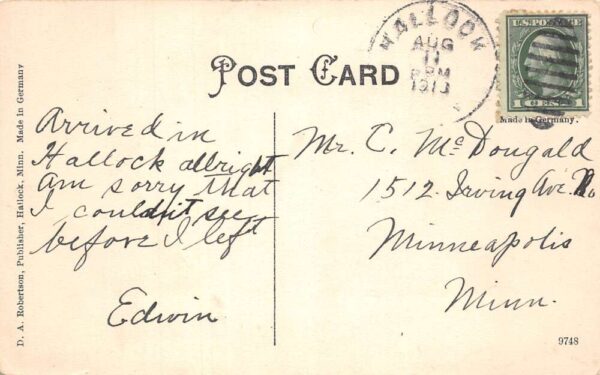 HALLOCK
AUG
11
PM
1913
U.S. POSTAGE
1 CENT 1
Made in Germany.
POST CARD
Arrived in
Hallock allright
am sorry that
I couldn't see
before I left
Edwin
Mr. C. McDougald
1512 Irving Ave. No
Minneapolis
Minn.
D. A. Robertson, Publisher, Hallock, Minn. Made in Germany
9748